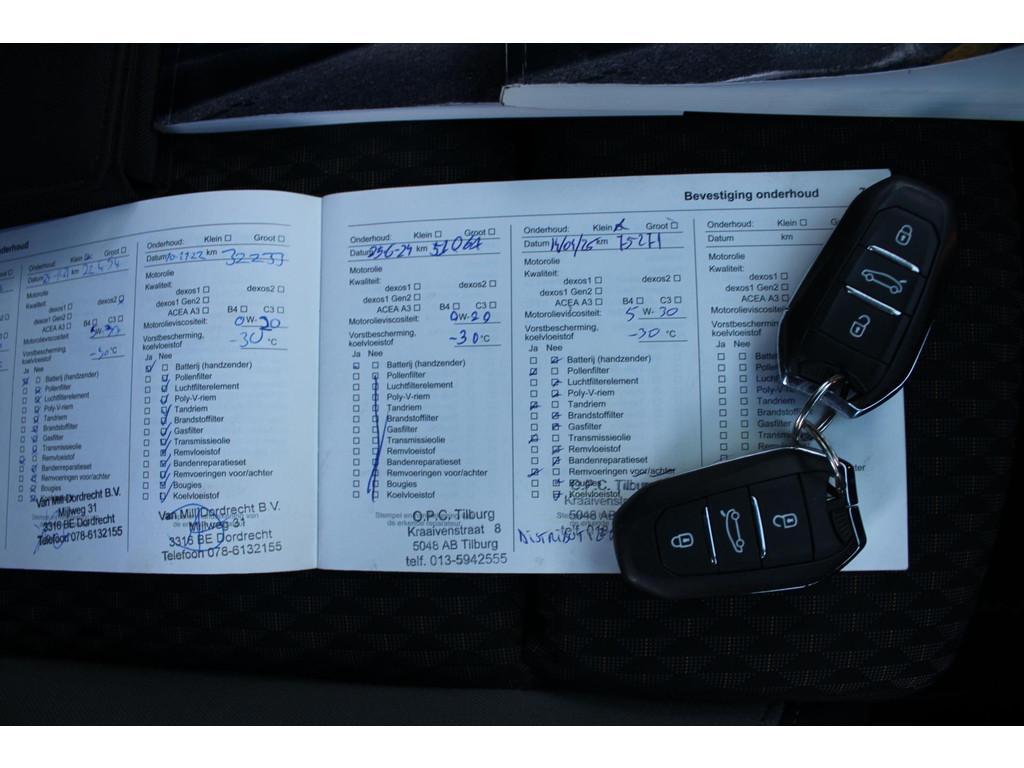 nderhoud
Onderhoud: Klein Groot
Datum km
Motorolie
Kwaliteit:
dexos1 dexos2
dexos1 Gen2
ACEA A3 B4 C3
Motorolieviscositeit:
Vorstbescherming,
koelvloeistof -30 °C
Ja Nee
Batterij (handzender)
Pollenfilter
Luchtfilterelement
Poly-V-riem
Tandriem
Brandstoffilter
Gasfilter
Transmissieolie
Remvloeistof
Bandenreparatieset
Remvoeringen voor/achter
Bougies
Van Mill Dordrecht B.V.
Mijlweg 31
3316 BE Dordrecht
Telefoon 078-6132155
Onderhoud: Klein Groot
Datum km 32237
Motorolie
Kwaliteit:
dexos1 dexos2
dexos1 Gen2
ACEA A3 B4 C3
Motorolieviscositeit: 0W-30
Vorstbescherming,
koelvloeistof -30 °C
Ja Nee
Batterij (handzender)
Pollenfilter
Luchtfilterelement
Poly-V-riem
Tandriem
Brandstoffilter
Gasfilter
Transmissieolie
Remvloeistof
Bandenreparatieset
Remvoeringen voor/achter
Bougies
Koelvloeistof
Van Mill Dordrecht B.V.
Mijlweg 31
3316 BE Dordrecht
Telefoon 078-6132155
Bevestiging onderhoud
Onderhoud: Klein Groot
Datum km
Motorolie
Kwaliteit:
dexos1 dexos2
dexos1 Gen2
ACEA A3 B4 C3
Motorolieviscositeit: 0W-20
Vorstbescherming,
koelvloeistof -30 °C
Ja Nee
Batterij (handzender)
Pollenfilter
Luchtfilterelement
Poly-V-riem
Tandriem
Brandstoffilter
Gasfilter
Transmissieolie
Remvloeistof
Bandenreparatieset
Remvoeringen voor/achter
Bougies
Koelvloeistof
O.P.C. Tilburg
Kraaivenstraat 8
5048 AB Tilburg
telf. 013-5942555
Onderhoud: Klein Groot
Datum km 75271
Motorolie
Kwaliteit:
dexos1 dexos2
dexos1 Gen2
ACEA A3 B4 C3
Motorolieviscositeit: 5W-30
Vorstbescherming,
koelvloeistof -30 °C
Ja Nee
Batterij (handzender)
Pollenfilter
Luchtfilterelement
Poly-V-riem
Tandriem
Brandstoffilter
Gasfilter
Transmissieolie
Remvloeistof
Bandenreparatieset
Remvoeringen voor/achter
Bougies
Koelvloeistof
O.P.C. Tilburg
Kraaivenst
5048 AB
Onderhoud: Klein
Datum km
Motorolie
Kwaliteit:
dexos1
dexos1 Gen2
ACEA A3
Motorolieviscositeit:
Vorstbescherming,
koelvloeistof
Ja Nee
Batte
Pollen
Lucht
Poly-V
Tandriem
Brandstoffi
Gasfilter
Transmissi